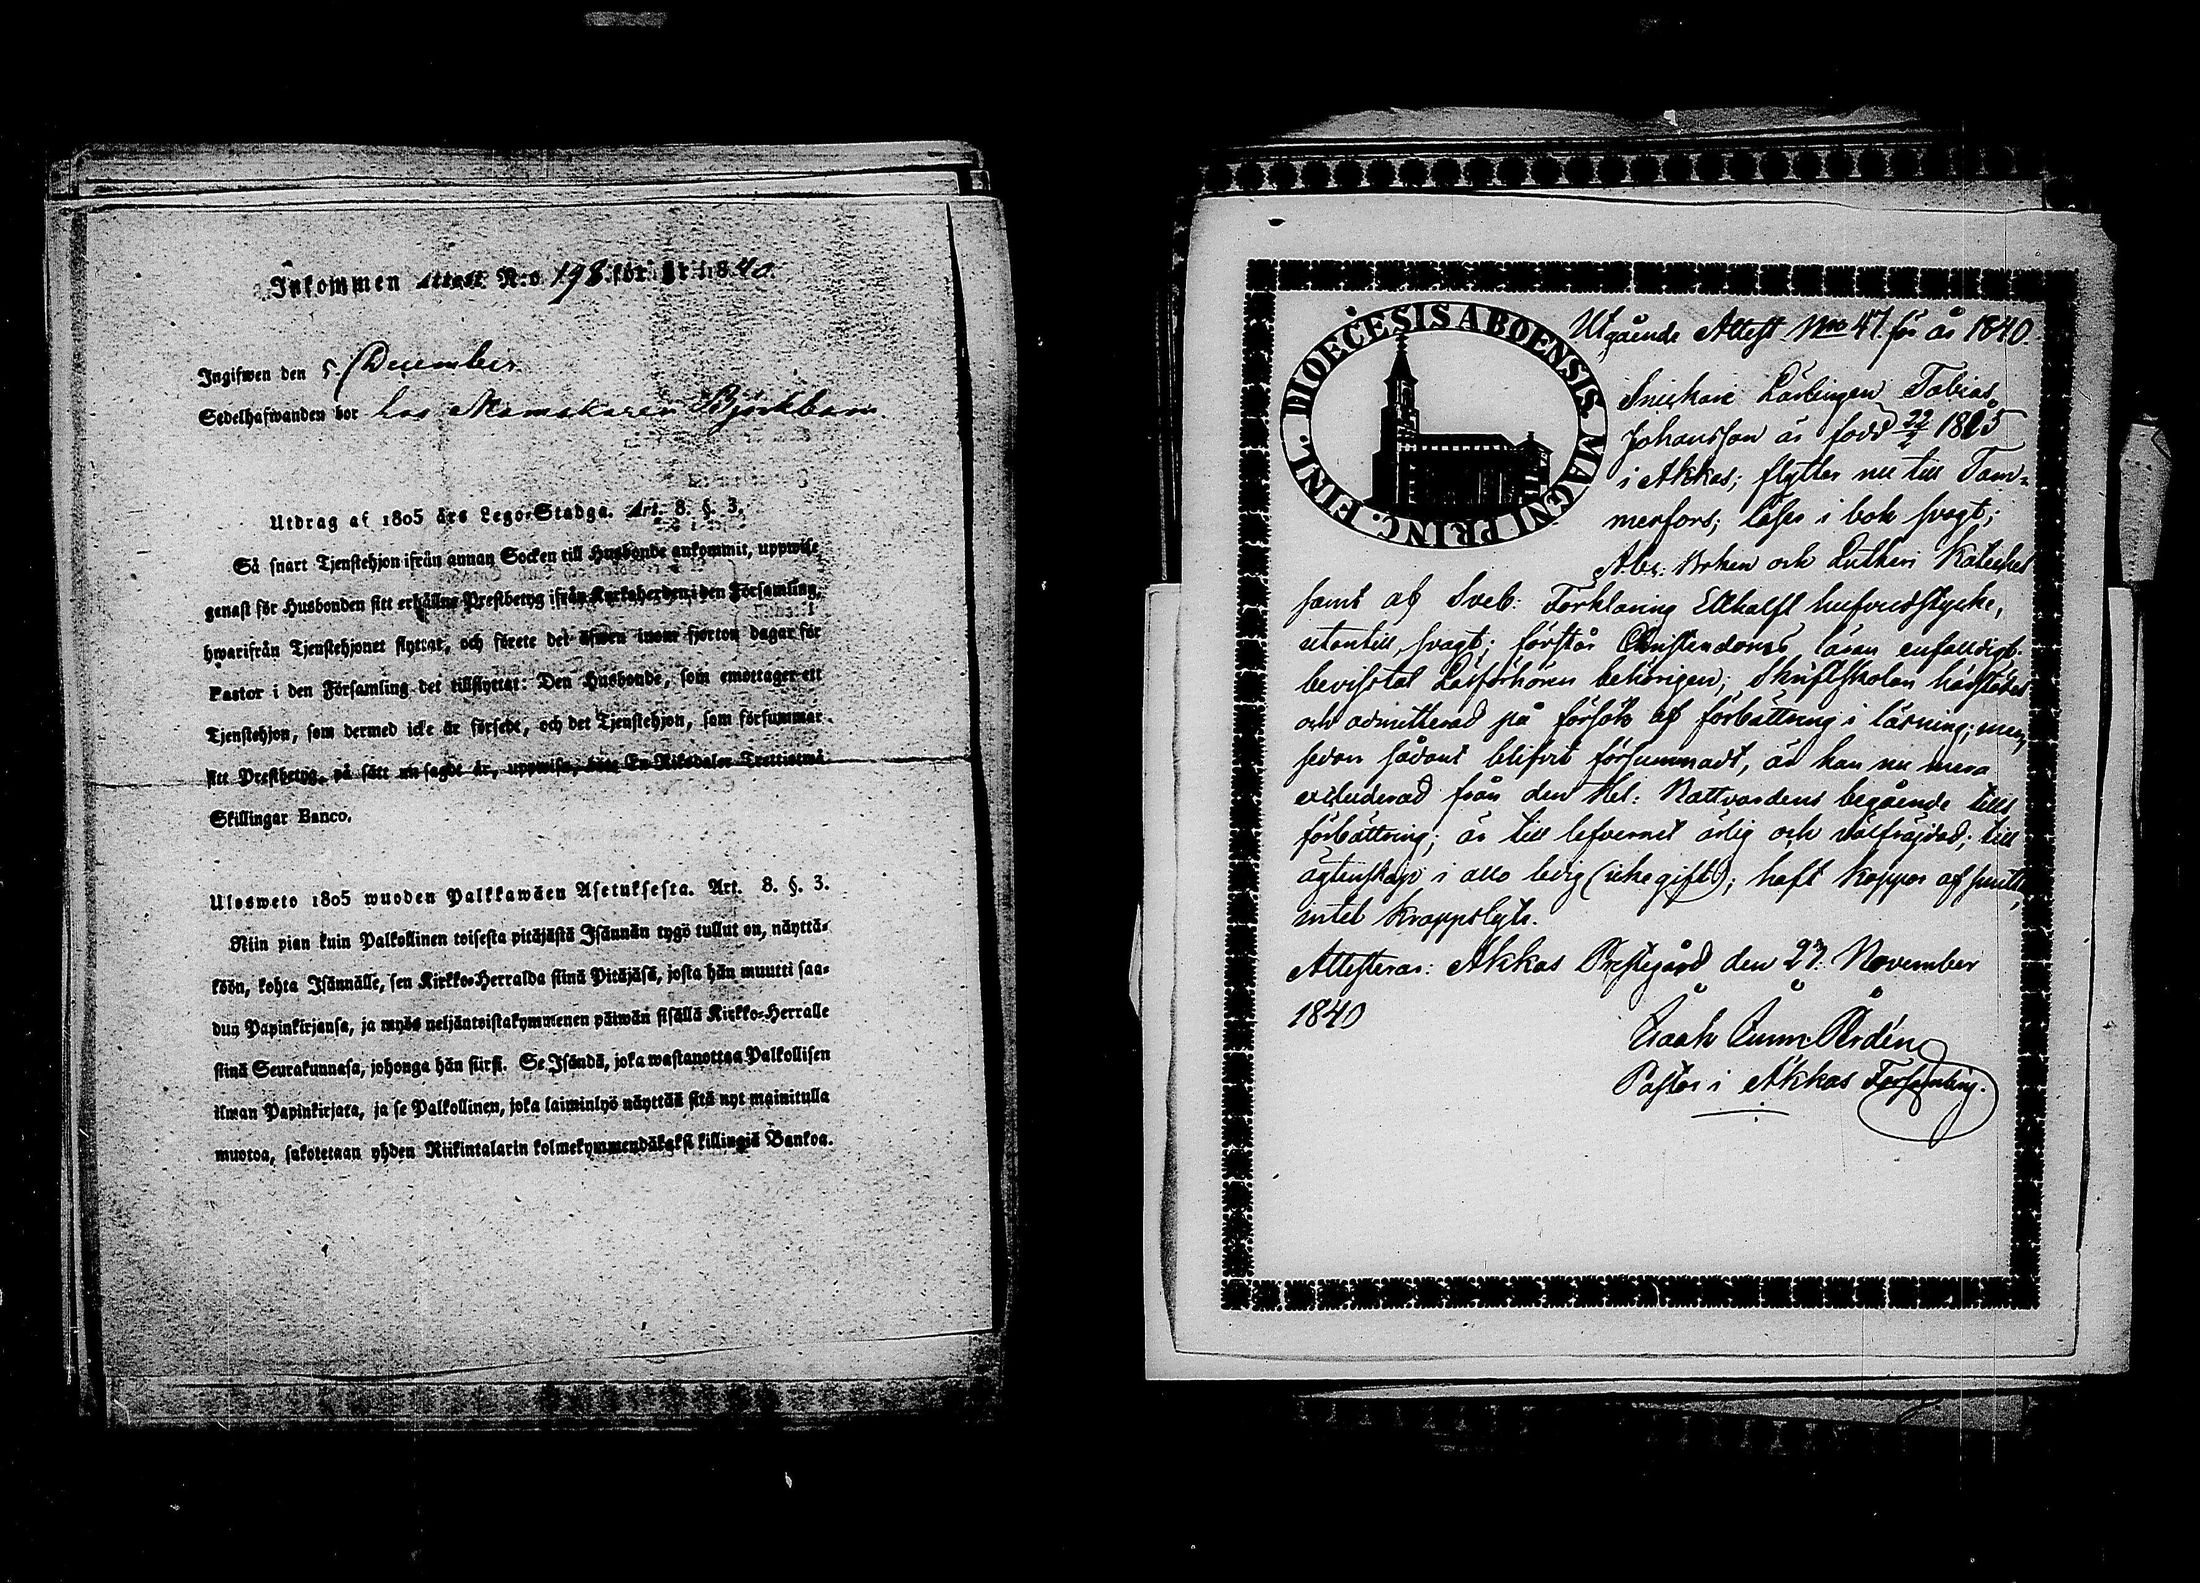 Inkommen attest N:o 198 för år 1840.
Ingifwen den 5 December
Sedelhafwanden bor hos Björkbom.
Utdrag af 1805 års Lego-Stadga. Art. 8. §. 3.
Så snart Tjenstehjon ifrån annan Socken till Husbonde ankommit, uppwise
genast för Husbonden sitt erhållne Prestbetyg ifrån Kyrkoherden i den Församling,
hwarifrån Tjenstehjonet flyttat, och förete det äfwen inom fjorton dagar för
Pastor i den Församling det tillflyttat: Den Husbonde, som emottager ett
Tjenstehjon, som dermed icke är försedt, och det Tjenstehjon, som försummar
sitt Prestbetyg, på sätt nu sagdt är, uppwisa, böte En Riksdaler Trettiotwå
Skillingar Banco.
Ulosweto 1805 wuoden Palkkawäen Asetuksesta. Art. 8. §. 3.
Niin pian kuin Palkollinen toisesta pitäjästä Isännän tygö tullut on, näyttä-
köön, kohta Isännälle, sen Kirkko-Herralda siinä Pitäjäsä, josta hän muutti saa-
dun Papinkirjansa, ja myös neljäntoistakymmenen päiwän sisällä Kirkko-Herralle
siinä Seurakunnasa, johonga hän siirsi. Se Isändä, joka wastanottaa Palkollisen
ilman Papinkirjata, ja se Palkollinen, joka laiminlyö näyttää sitä nyt mainitulla
muotoa, sakotetaan yhden Riikintalarin kolmekymmendäkaksi killingiä Bankoa.
FINL. DIOECESIS ABOENSIS MAGNI PRINC.
Utgående Attest Nro 47. för år 1840.
Snickare Lärlingen Tobias
Johansson är född 22/2 1815
i Akkas; flyttar nu till Tam-
merfors; läser i bok svagt;
Abc: Boken och Lutheri Kateches
samt af Sveb: Förklaring Ett halft hufvudstycke,
utantill, svagt; förstår Christendoms läran enfalldigt.
bevistat Läsförhören behörigen; Skriftskolan härstädes
och admitterad på försök af förbättring i läsning; men
sedan sådant blifvit försummadt, är han nu mera
excluderad från den Hel: Nattvardens begående tills
förbättring; är till lefvernet ärlig och välfräjdad; till
ägtenskap i allo ledig (icke gift); haft koppor af smitta,
intet kroppslyte.
Attesteras: Akkas Prestegård den 27. November
1840
Isaak Gunn:
Pastor i Akkas Församling.